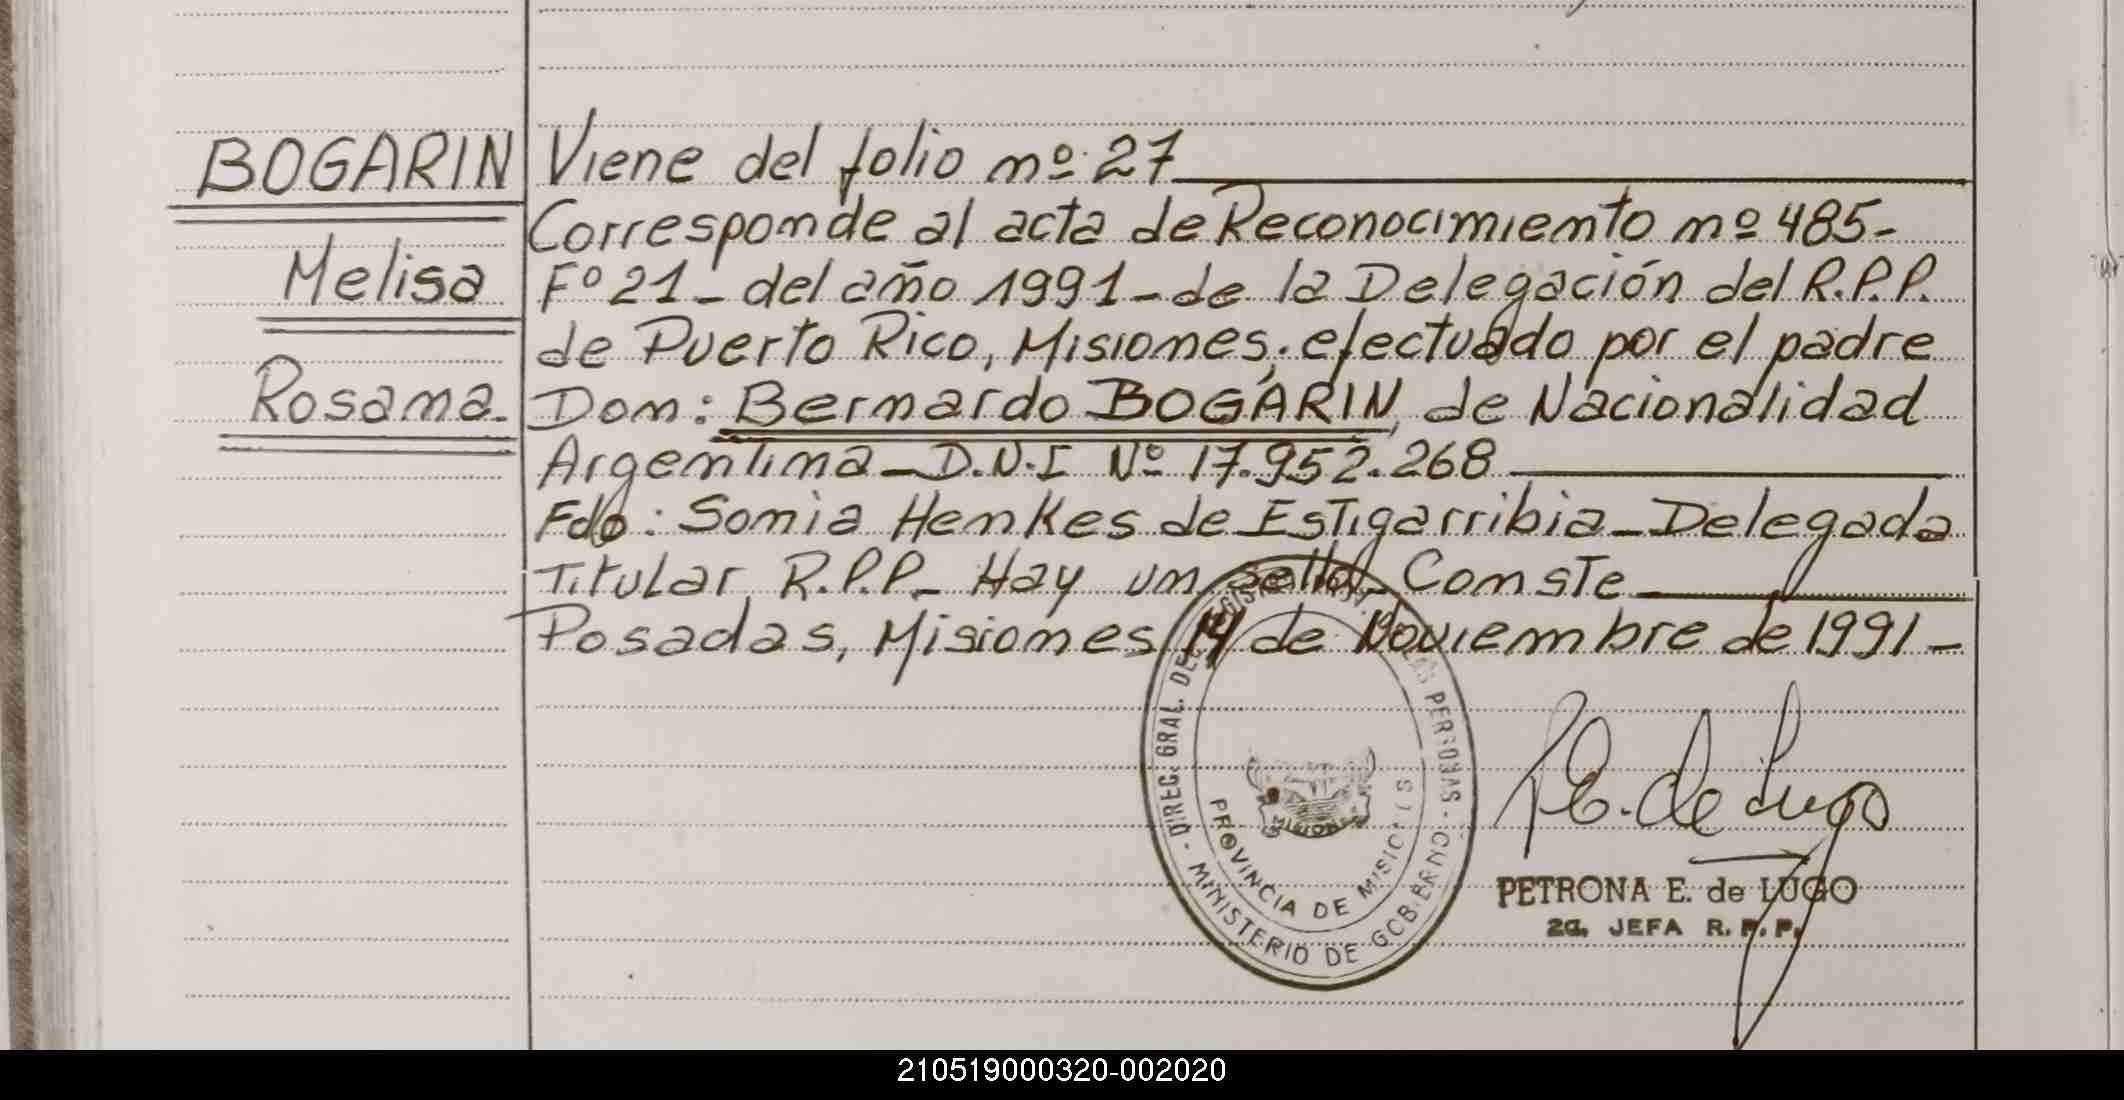 BOGARIN
Melisa
Rosana.
Viene del folio nº 27
Corresponde al acta de Reconocimiento nº 485-
Fº 21 - del año 1991 - de la Delegación del R.P.P.
de Puerto Rico, Misiones, efectuado por el padre
Don: Bernardo BOGARIN, de Nacionalidad
Argentina - D.N.I Nº 17.952.268
Fdo: Sonia Henkes de Estigarribia - Delegada
Titular R.P.P. - Hay un sello - Conste
Posadas, Misiones 14 de Noviembre de 1991 -
DIREC. GRAL. DEL REGISTRO DE LAS PERSONAS - MINISTERIO DE GOBIERNO -
MISIONES
PROVINCIA DE MISIONES
P.E. de Lugo
PETRONA E. de LUGO
2a. JEFA R. P. P.
210519000320-002020